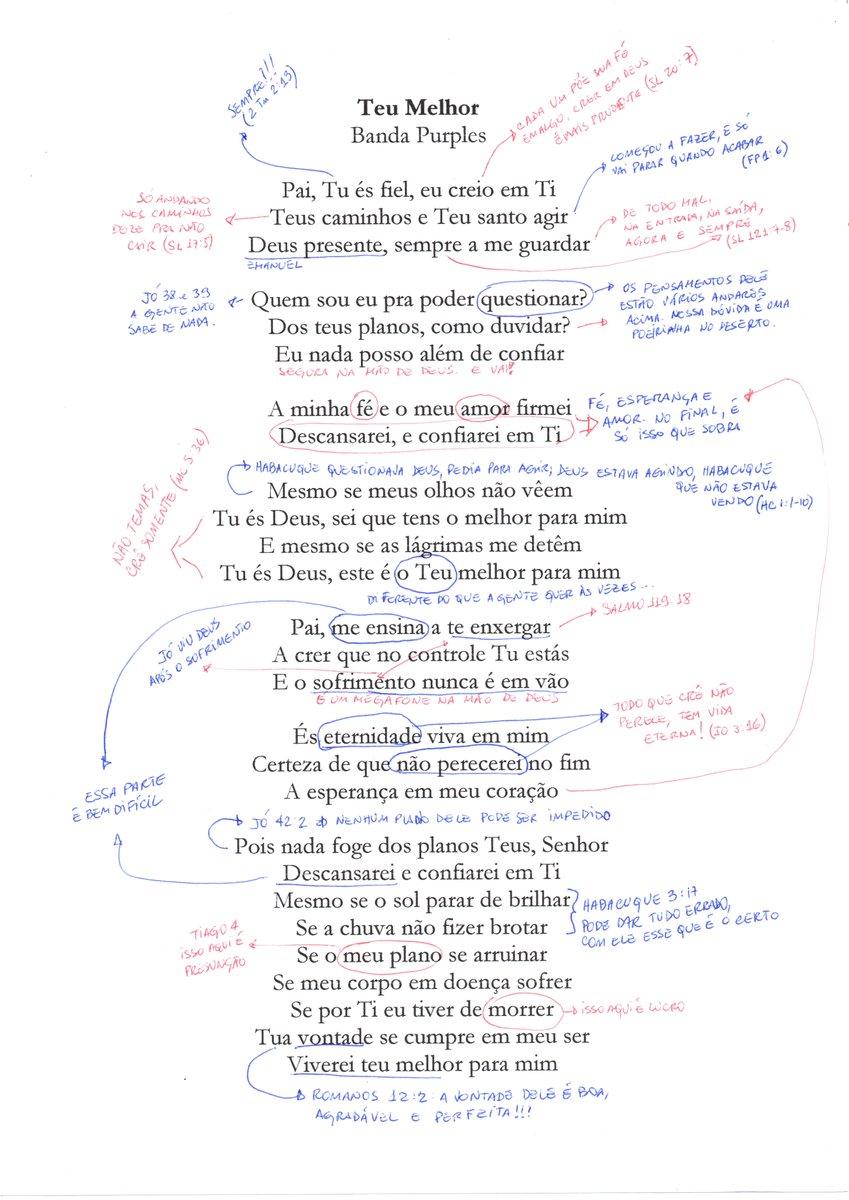 SEMPRE!!!
(2 Tm 2:13)
Teu Melhor
Banda Purples
CADA UM PÕE SUA FÉ
EM ALGO, CRER EM DEUS
É MAIS PRUDENTE (SL 20:7)
COMEÇOU A FAZER, E SÓ
VAI PARAR QUANDO ACABAR
(FP 1:6)
Pai, Tu és fiel, eu creio em Ti
SÓ ANDANDO
NOS CAMINHOS
DELE PRA NÃO
CAIR (SL 17:5)
Teus caminhos e Teu santo agir
DE TODO MAL.
NA ENTRADA, NA SAÍDA,
AGORA E SEMPRE
(SL 121 7-8)
Deus presente, sempre a me guardar
EMANUEL
JÓ 38 e 39
A GENTE NÃO
SABE DE NADA.
Quem sou eu pra poder questionar?
OS PENSAMENTOS DELE
ESTÃO VÁRIOS ANDARES
ACIMA. NOSSA DÚVIDA É UMA
POEIRINHA NO DESERTO.
Dos teus planos, como duvidar?
Eu nada posso além de confiar
SEGURA NA MÃO DE DEUS. E VAI!
A minha fé e o meu amor firmei
FÉ, ESPERANÇA E
AMOR. NO FINAL, É
SÓ ISSO QUE SOBRA
Descansarei, e confiarei em Ti
HABACUQUE QUESTIONAVA DEUS, PEDIA PARA AGIR; DEUS ESTAVA AGINDO, HABACUQUE
QUE NÃO ESTAVA
VENDO (HC 1:1-10)
NÃO TEMAS,
CRÊ SOMENTE (MC 5:36)
Mesmo se meus olhos não vêem
Tu és Deus, sei que tens o melhor para mim
E mesmo se as lágrimas me detêm
Tu és Deus, este é o Teu melhor para mim
DIFERENTE DO QUE A GENTE QUER ÀS VEZES...
JÓ VIU DEUS
APÓS O SOFRIMENTO
Pai, me ensina a te enxergar
SALMO 119:18
A crer que no controle Tu estás
E o sofrimento nunca é em vão
É UM MEGAFONE NA MÃO DE DEUS
TODO QUE CRÊ NÃO
PERECE, TEM VIDA
ETERNA! (JO 3:16)
És eternidade viva em mim
Certeza de que não perecerei no fim
A esperança em meu coração
ESSA PARTE
É BEM DIFÍCIL
JÓ 42:2 NENHUM PLANO DELE PODE SER IMPEDIDO
Pois nada foge dos planos Teus, Senhor
Descansarei e confiarei em Ti
Mesmo se o sol parar de brilhar
HABACUQUE 3:17
PODE DAR TUDO ERRADO,
COM ELE ESSE QUE É O CERTO
Se a chuva não fizer brotar
TIAGO 4
ISSO AQUI É
PRESUNÇÃO
Se o meu plano se arruinar
Se meu corpo em doença sofrer
Se por Ti eu tiver de morrer
ISSO AQUI É LUCRO
Tua vontade se cumpre em meu ser
Viverei teu melhor para mim
ROMANOS 12:2: A VONTADE DELE É BOA,
AGRADÁVEL E PERFEITA!!!